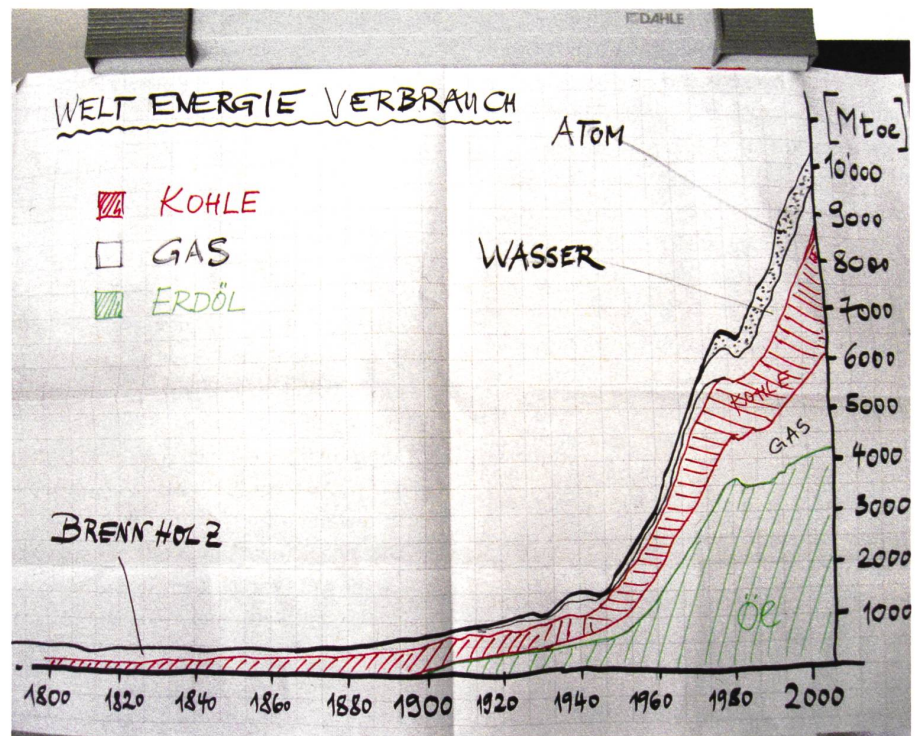 DAHLE
WELT ENERGIE VERBRAUCH
[Mtoe]
ATOM
KOHLE
GAS
ERDÖL
WASSER
BRENNHOLZ
KOHLE
GAS
Öl
10'000
9000
8000
7000
6000
5000
4000
3000
2000
1000
1800 1820 1840 1860 1880 1900 1920 1940 1960 1980 2000